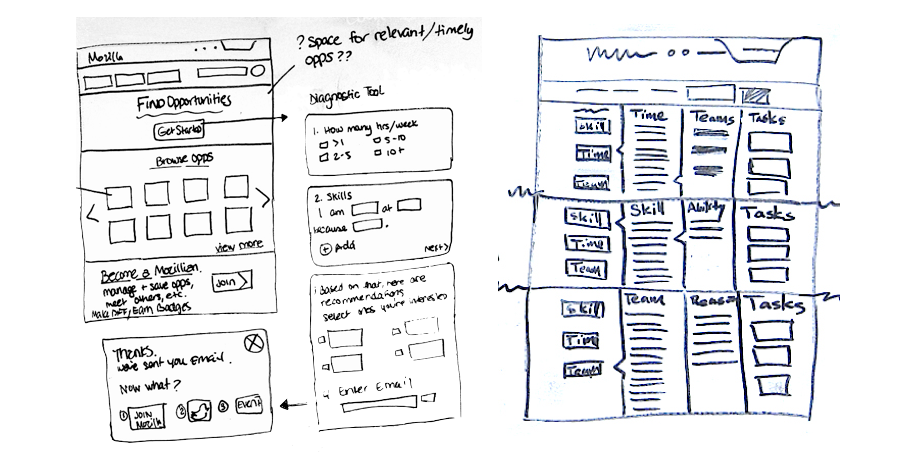 ? Space for relevant/timely
opps??
Mozilla
Find Opportunities
Get Started
Browse opps
view more
Become a Mozillian.
manage + save opps,
meet others, etc.
Make Diff, Earn Badges
Join
Diagnostic Tool
1. How many hrs/week
>1
5-10
2-5
10+
2. Skills
I am
at
because
.
+ Add
next>
Based on that, here are
recommendations
select ones you're interested
4 Enter Email
Thanks.
we've sent you Email.
Now what?
1
JOIN
Mozilla
2
3
Event
Skill
Time
Team
Time
Teams
Tasks
Skill
Time
Team
Skill
Ability
Tasks
Skill
Time
Team
Team
Reason
Tasks